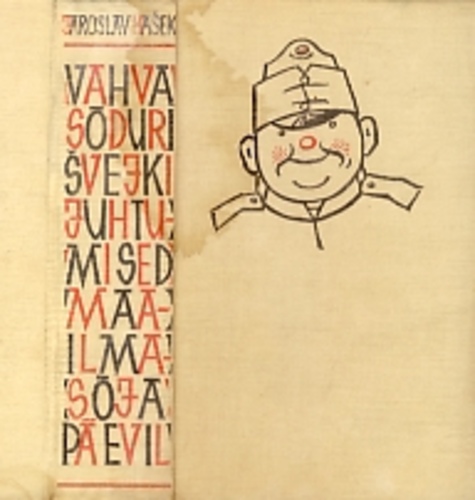 JAROSLAV HAŠEK
VAHVA
SÕDURI
ŠVEJKI
JUHTU-
MISED
MAA-
ILMA-
SÕJA
PÄEVIL